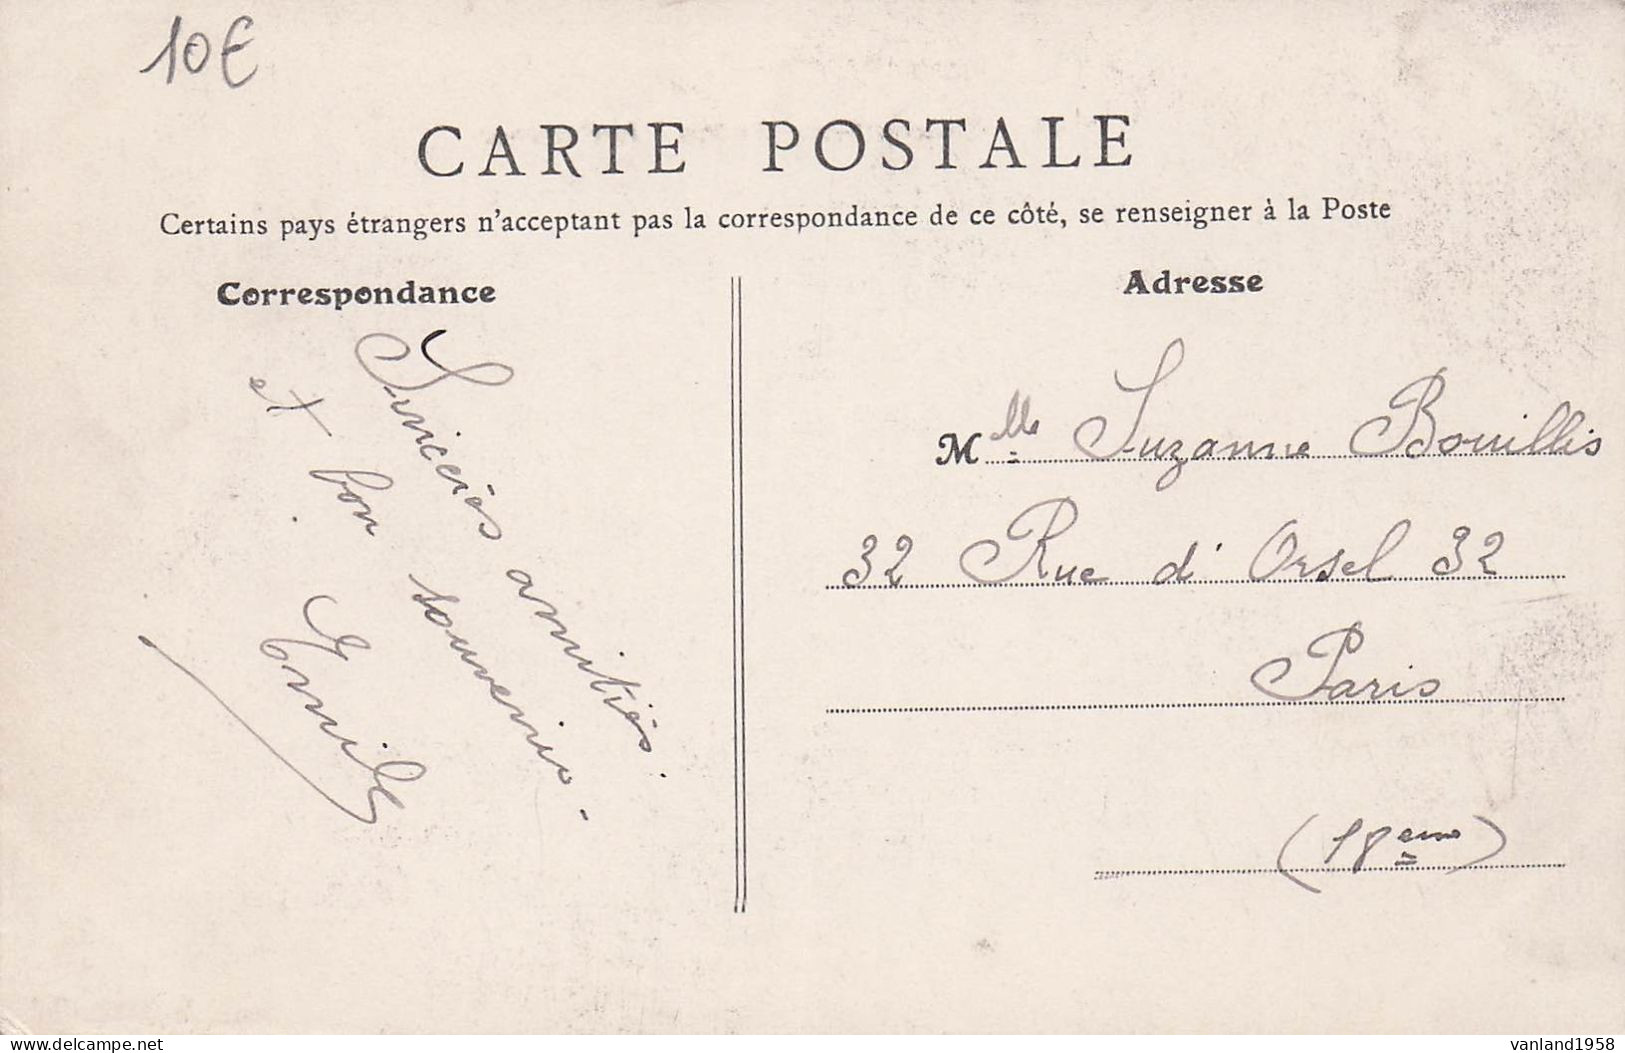 10€
CARTE POSTALE
Certains pays étrangers n'acceptant pas la correspondance de ce côté, se renseigner à la Poste
Correspondance
Sincères amitiés
et bon souvenir.
Emile
Adresse
Mlle Suzanne Bouillis
32 Rue d'Orsel 32
Paris
(18eme)
www.delcampe.net
vanland1958